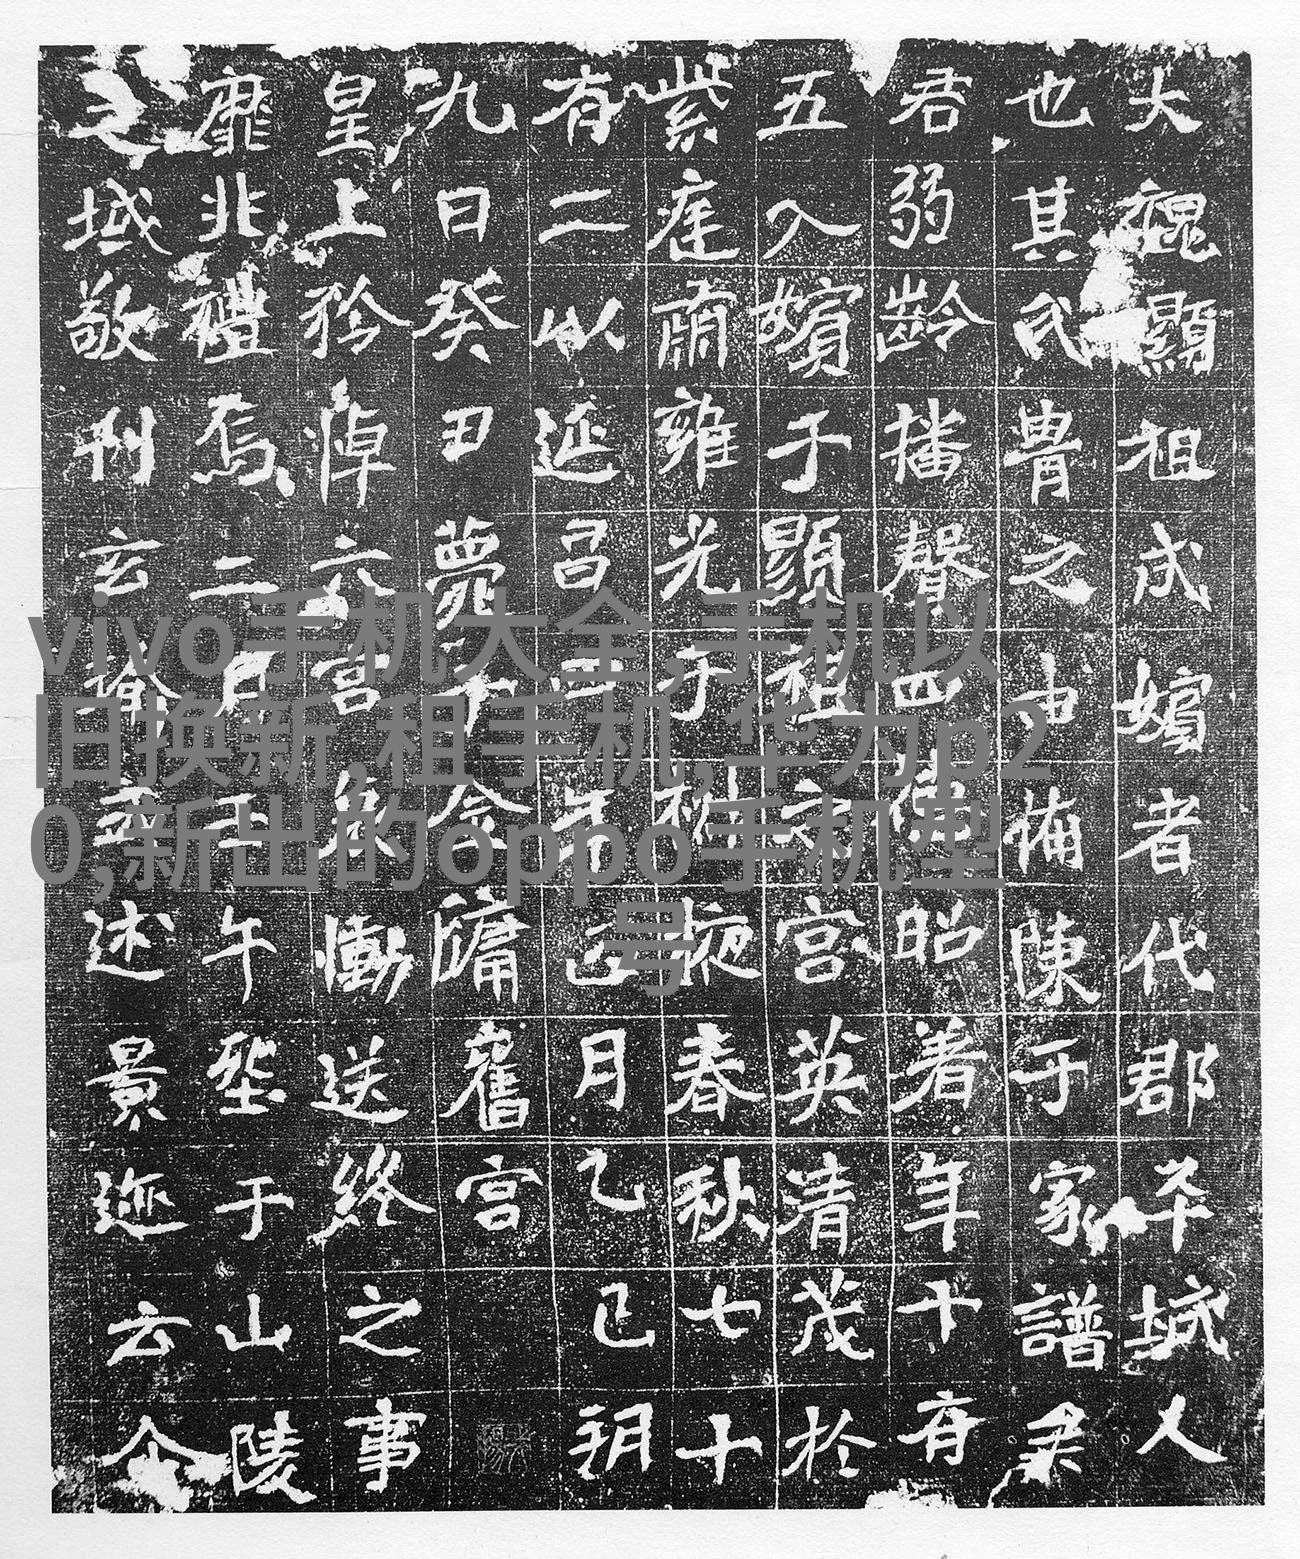 大魏顯祖成嬪者代郡平城人
也其氏胄之由備陳于家譜
君弱齡播聲四德昭著年十有
五入嬪于顯祖文宮英清茂於
紫庭肅雍光于椒掖春秋七十
有二以延昌年正月乙巳朔
九日癸丑薨于金墉舊宮
皇上矜悼六宮哀慟送終之事
靡非禮焉二月壬午塟于山陵
之域敬刊玄述景迹云
vivo手机大全,手机以
旧换新,租手机,华为p2
0,新出的oppo手机型
号